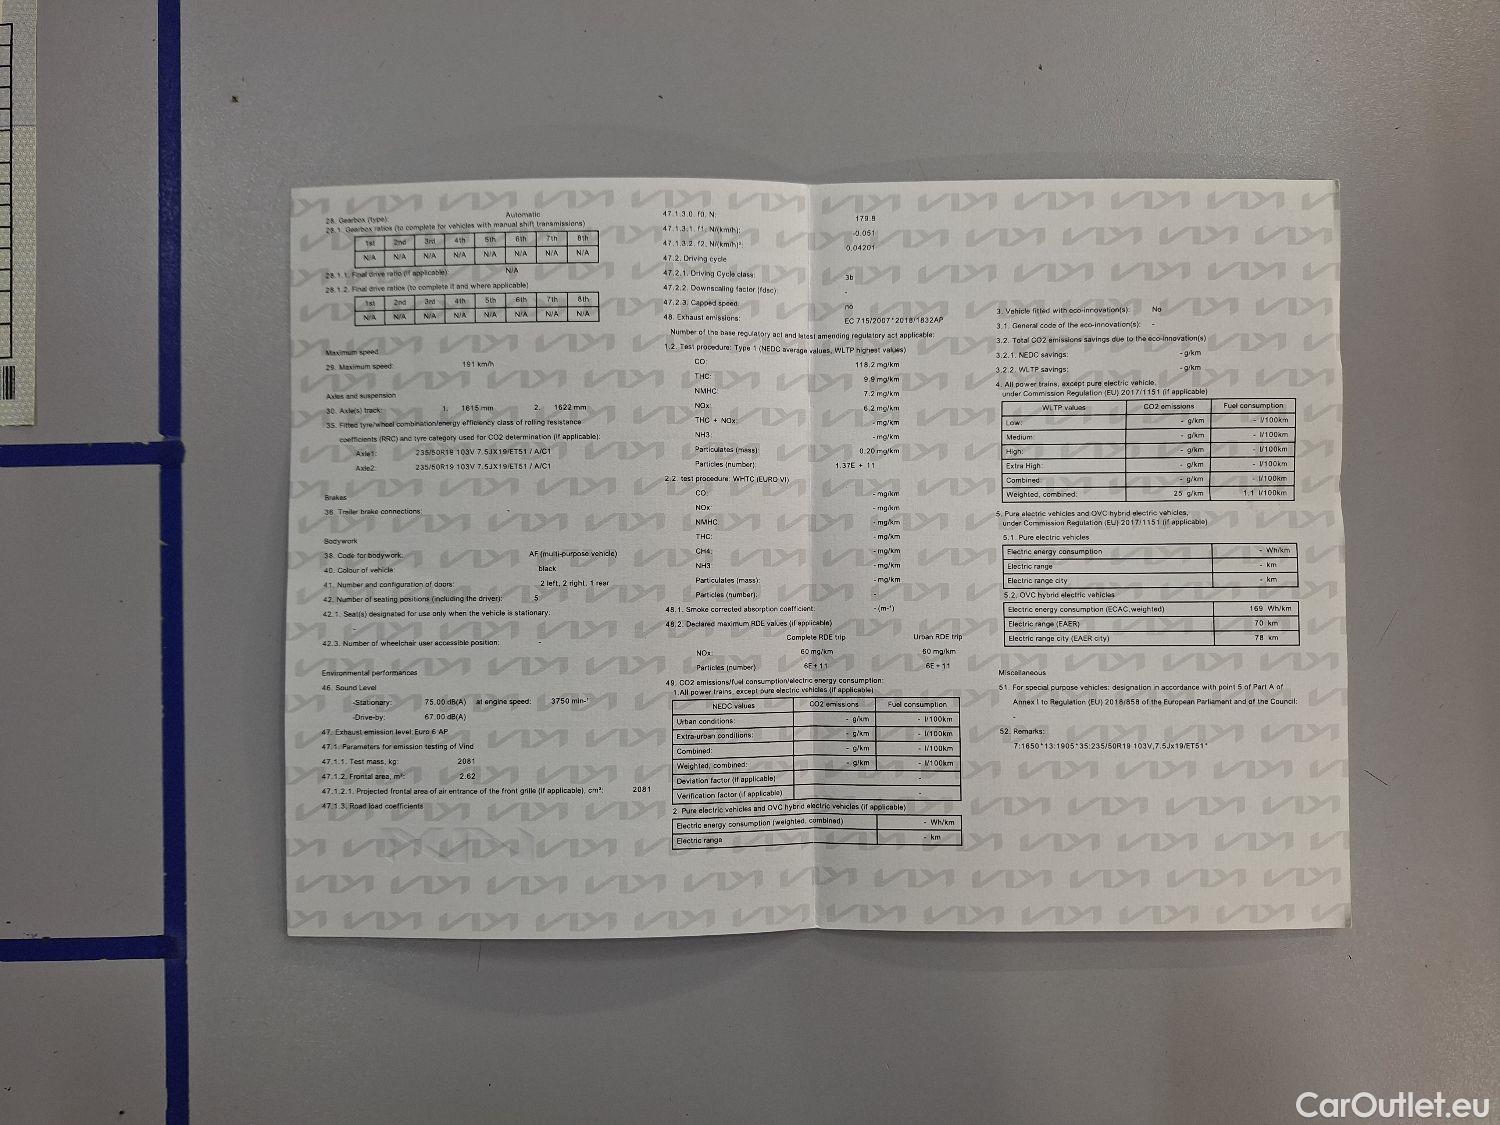 28. Gearbox (type): Automatic
28.1. Gearbox ratios (to complete for vehicles with manual shift transmissions)
1st 2nd 3rd 4th 5th 6th 7th 8th
N/A N/A N/A N/A N/A N/A N/A N/A
28.1.1. Final drive ratio (if applicable): N/A
28.1.2. Final drive ratios (to complete if and where applicable)
1st 2nd 3rd 4th 5th 6th 7th 8th
N/A N/A N/A N/A N/A N/A N/A N/A
Maximum speed
29. Maximum speed: 191 km/h
Axles and suspension
30. Axle(s) track: 1. 1615 mm 2. 1622 mm
35. Fitted tyre/wheel combination/energy efficiency class of rolling resistance
coefficients (RRC) and tyre category used for CO2 determination (if applicable):
Axle1: 235/50R19 103V 7.5JX19/ET51 / A/C1
Axle2: 235/50R19 103V 7.5JX19/ET51 / A/C1
Brakes
36. Trailer brake connections: -
Bodywork
38. Code for bodywork: AF (multi-purpose vehicle)
40. Colour of vehicle: black
41. Number and configuration of doors: 2 left, 2 right, 1 rear
42. Number of seating positions (including the driver): 5
42.1. Seat(s) designated for use only when the vehicle is stationary:
-
42.3. Number of wheelchair user accessible position: -
Environmental performances
46. Sound Level
-Stationary: 75.00 dB(A) at engine speed: 3750 min-¹
-Drive-by: 67.00 dB(A)
47. Exhaust emission level: Euro 6 AP
47.1. Parameters for emission testing of Vind
47.1.1. Test mass, kg: 2081
47.1.2. Frontal area, m²: 2.62
47.1.2.1. Projected frontal area of air entrance of the front grille (if applicable), cm²: 2081
47.1.3. Road load coefficients
47.1.3.0. f0, N: 179.8
47.1.3.1. f1, N/(km/h): -0.051
47.1.3.2. f2, N/(km/h)²: 0.04201
47.2. Driving cycle
47.2.1. Driving Cycle class: 3b
47.2.2. Downscaling factor (fdsc): -
47.2.3. Capped speed: no
48. Exhaust emissions: EC 715/2007*2018/1832AP
Number of the base regulatory act and latest amending regulatory act applicable:
1.2. Test procedure: Type 1 (NEDC average values, WLTP highest values)
CO: 118.2 mg/km
THC: 9.9 mg/km
NMHC: 7.2 mg/km
NOx: 6.2 mg/km
THC + NOx: - mg/km
NH3: - mg/km
Particulates (mass): 0.20 mg/km
Particles (number): 1.37E + 11
2.2. test procedure: WHTC (EURO VI)
CO: - mg/km
NOx: - mg/km
NMHC: - mg/km
THC: - mg/km
CH4: - mg/km
NH3: - mg/km
Particulates (mass): - mg/km
Particles (number): -
48.1. Smoke corrected absorption coefficient: - (m-¹)
48.2. Declared maximum RDE values (if applicable)
Complete RDE trip Urban RDE trip
NOx: 60 mg/km 60 mg/km
Particles (number) 6E+11 6E+11
49. CO2 emissions/fuel consumption/electric energy consumption:
1.All power trains, except pure electric vehicles (if applicable)
NEDC values CO2 emissions Fuel consumption
Urban conditions: - g/km - l/100km
Extra-urban conditions: - g/km - l/100km
Combined: - g/km - l/100km
Weighted, combined: - g/km - l/100km
Deviation factor (if applicable) -
Verification factor (if applicable) -
2. Pure electric vehicles and OVC hybrid electric vehicles (if applicable)
Electric energy consumption (weighted, combined) - Wh/km
Electric range - km
3. Vehicle fitted with eco-innovation(s): No
3.1. General code of the eco-innovation(s): -
3.2. Total CO2 emissions savings due to the eco-innovation(s)
3.2.1. NEDC savings: - g/km
3.2.2. WLTP savings: - g/km
4. All power trains, except pure electric vehicle,
under Commission Regulation (EU) 2017/1151 (if applicable)
WLTP values CO2 emissions Fuel consumption
Low: - g/km - l/100km
Medium: - g/km - l/100km
High: - g/km - l/100km
Extra High: - g/km - l/100km
Combined: - g/km - l/100km
Weighted, combined: 25 g/km 1.1 l/100km
5. Pure electric vehicles and OVC hybrid electric vehicles,
under Commission Regulation (EU) 2017/1151 (if applicable)
5.1. Pure electric vehicles
Electric energy consumption - Wh/km
Electric range - km
Electric range city - km
5.2. OVC hybrid electric vehicles
Electric energy consumption (ECAC,weighted) 169 Wh/km
Electric range (EAER) 70 km
Electric range city (EAER city) 78 km
Miscellaneous
51. For special purpose vehicles: designation in accordance with point 5 of Part A of
Annex I to Regulation (EU) 2018/858 of the European Parliament and of the Council:
-
52. Remarks:
7:1650*13:1905*35:235/50R19 103V,7.5Jx19/ET51*
CarOutlet.eu